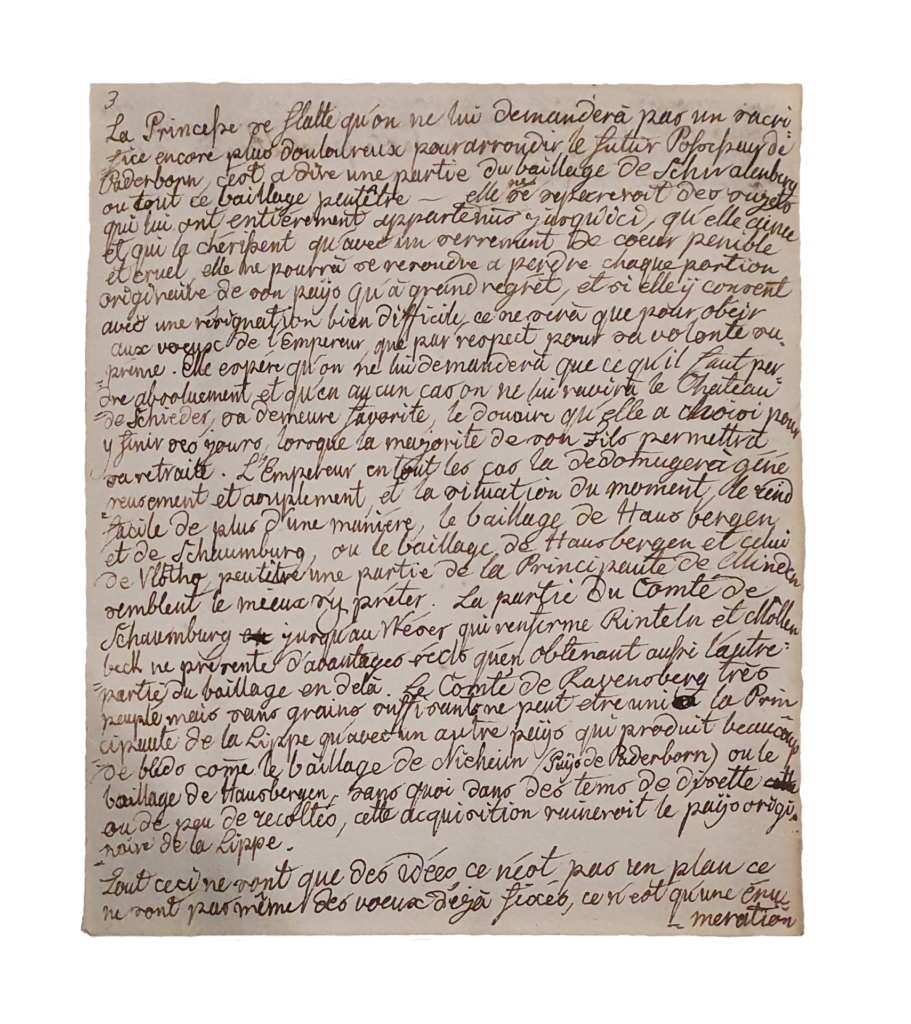 3
La Princesse se flatte qu'on ne lui demanderà pas un sacri-
fice encore plus douloureux pour arrondir le futur Possesseur de
Paderborn, cest a dire une partie du baillage de Schwalenberg
ou tout ce baillage peutêtre — elle ne se separeroit des sujets
qui lui ont entièrement appartenus jusqu'ici, qu'elle aime
et qui la cherissent qu'avec un serrement de coeur penible
et cruel, elle ne pourrà se resoudre a perdre chaque portion
originaire de son païjs qu'à grand regrêt, et si elle ÿ consent
avec une résignation bien difficile, ce ne serà que pour obeir
aux voeux de l'Empereur que par respect pour sa volonté su-
prême. Elle espére qu'on ne lui demanderà que ce qu'il faut per-
dre absoluement et qu'en aucun cas on ne lui ravirà le Chateau
de Schieder, sa demeure favorite, le douaire qu'elle a choisi pour
y finir ses jours, lorsque la majorite de son Fils permettrà
sa retraite. L'Empereur en tout les cas la dedomagerà gene
reusement et amplement, et la situation du moment, le rend
facile de plus d'une manière, le baillage de Hausbergen
et de Schaumburg, ou le baillage de Hausbergen et celui
de Vlotho peutêtre une partie de la Principauté de Minden
semblent le mieux s'y prêter. La partie du Comté de
Schaumburg jusqu'au Weser qui renferme Rinteln et Möllen
beck ne présente d'avantages réels quen obtenant aussi l'autre
partie du baillage en delà. Le Comté de Ravensberg très
peuplé mais sans grains suffisants ne peut etre uni la Prin
cipauté de la Lippe qu'avec un autre païjs qui produit beaucoup
de bleds come le baillage de Nieheim (Païjs de Paderborn) ou le
baillage de Hausbergen, sans quoi dans des tems de disette
ou de peu de récoltes, cette acquisition ruineroit le païjs origi-
naire de la Lippe.
Tout ceci ne sont que des idées ce n'est pas un plan ce
ne sont pas même des voeux déjà fixés, ce n'est qu'une énu-
meration